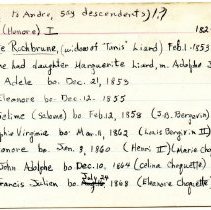 to Andre, say descendents) 1.)
(Honore) I 182
e Ruchbrune, (widow of "Tanis" Liard) Feb. 1. 1853
he had daughter Marguerite Liard, m. Adolphe J
Adele bo. Dec. 21, 1853
Eleanore bo. Dec. 12. 1855
elime (Salome) bo. Feb. 12, 1858 (J.B. Bergovin)
phie Virginia bo. Mar. 11, 1862 (Louis Bergrin II)
onore bo. Jan. 8, 1860 (Henri I) (Marie Cho
John Adolphe bo. Dec. 10, 1864 (Celina Choquette)
July 24
rancis Julien bo. 1868 (Eleanore Choquette)